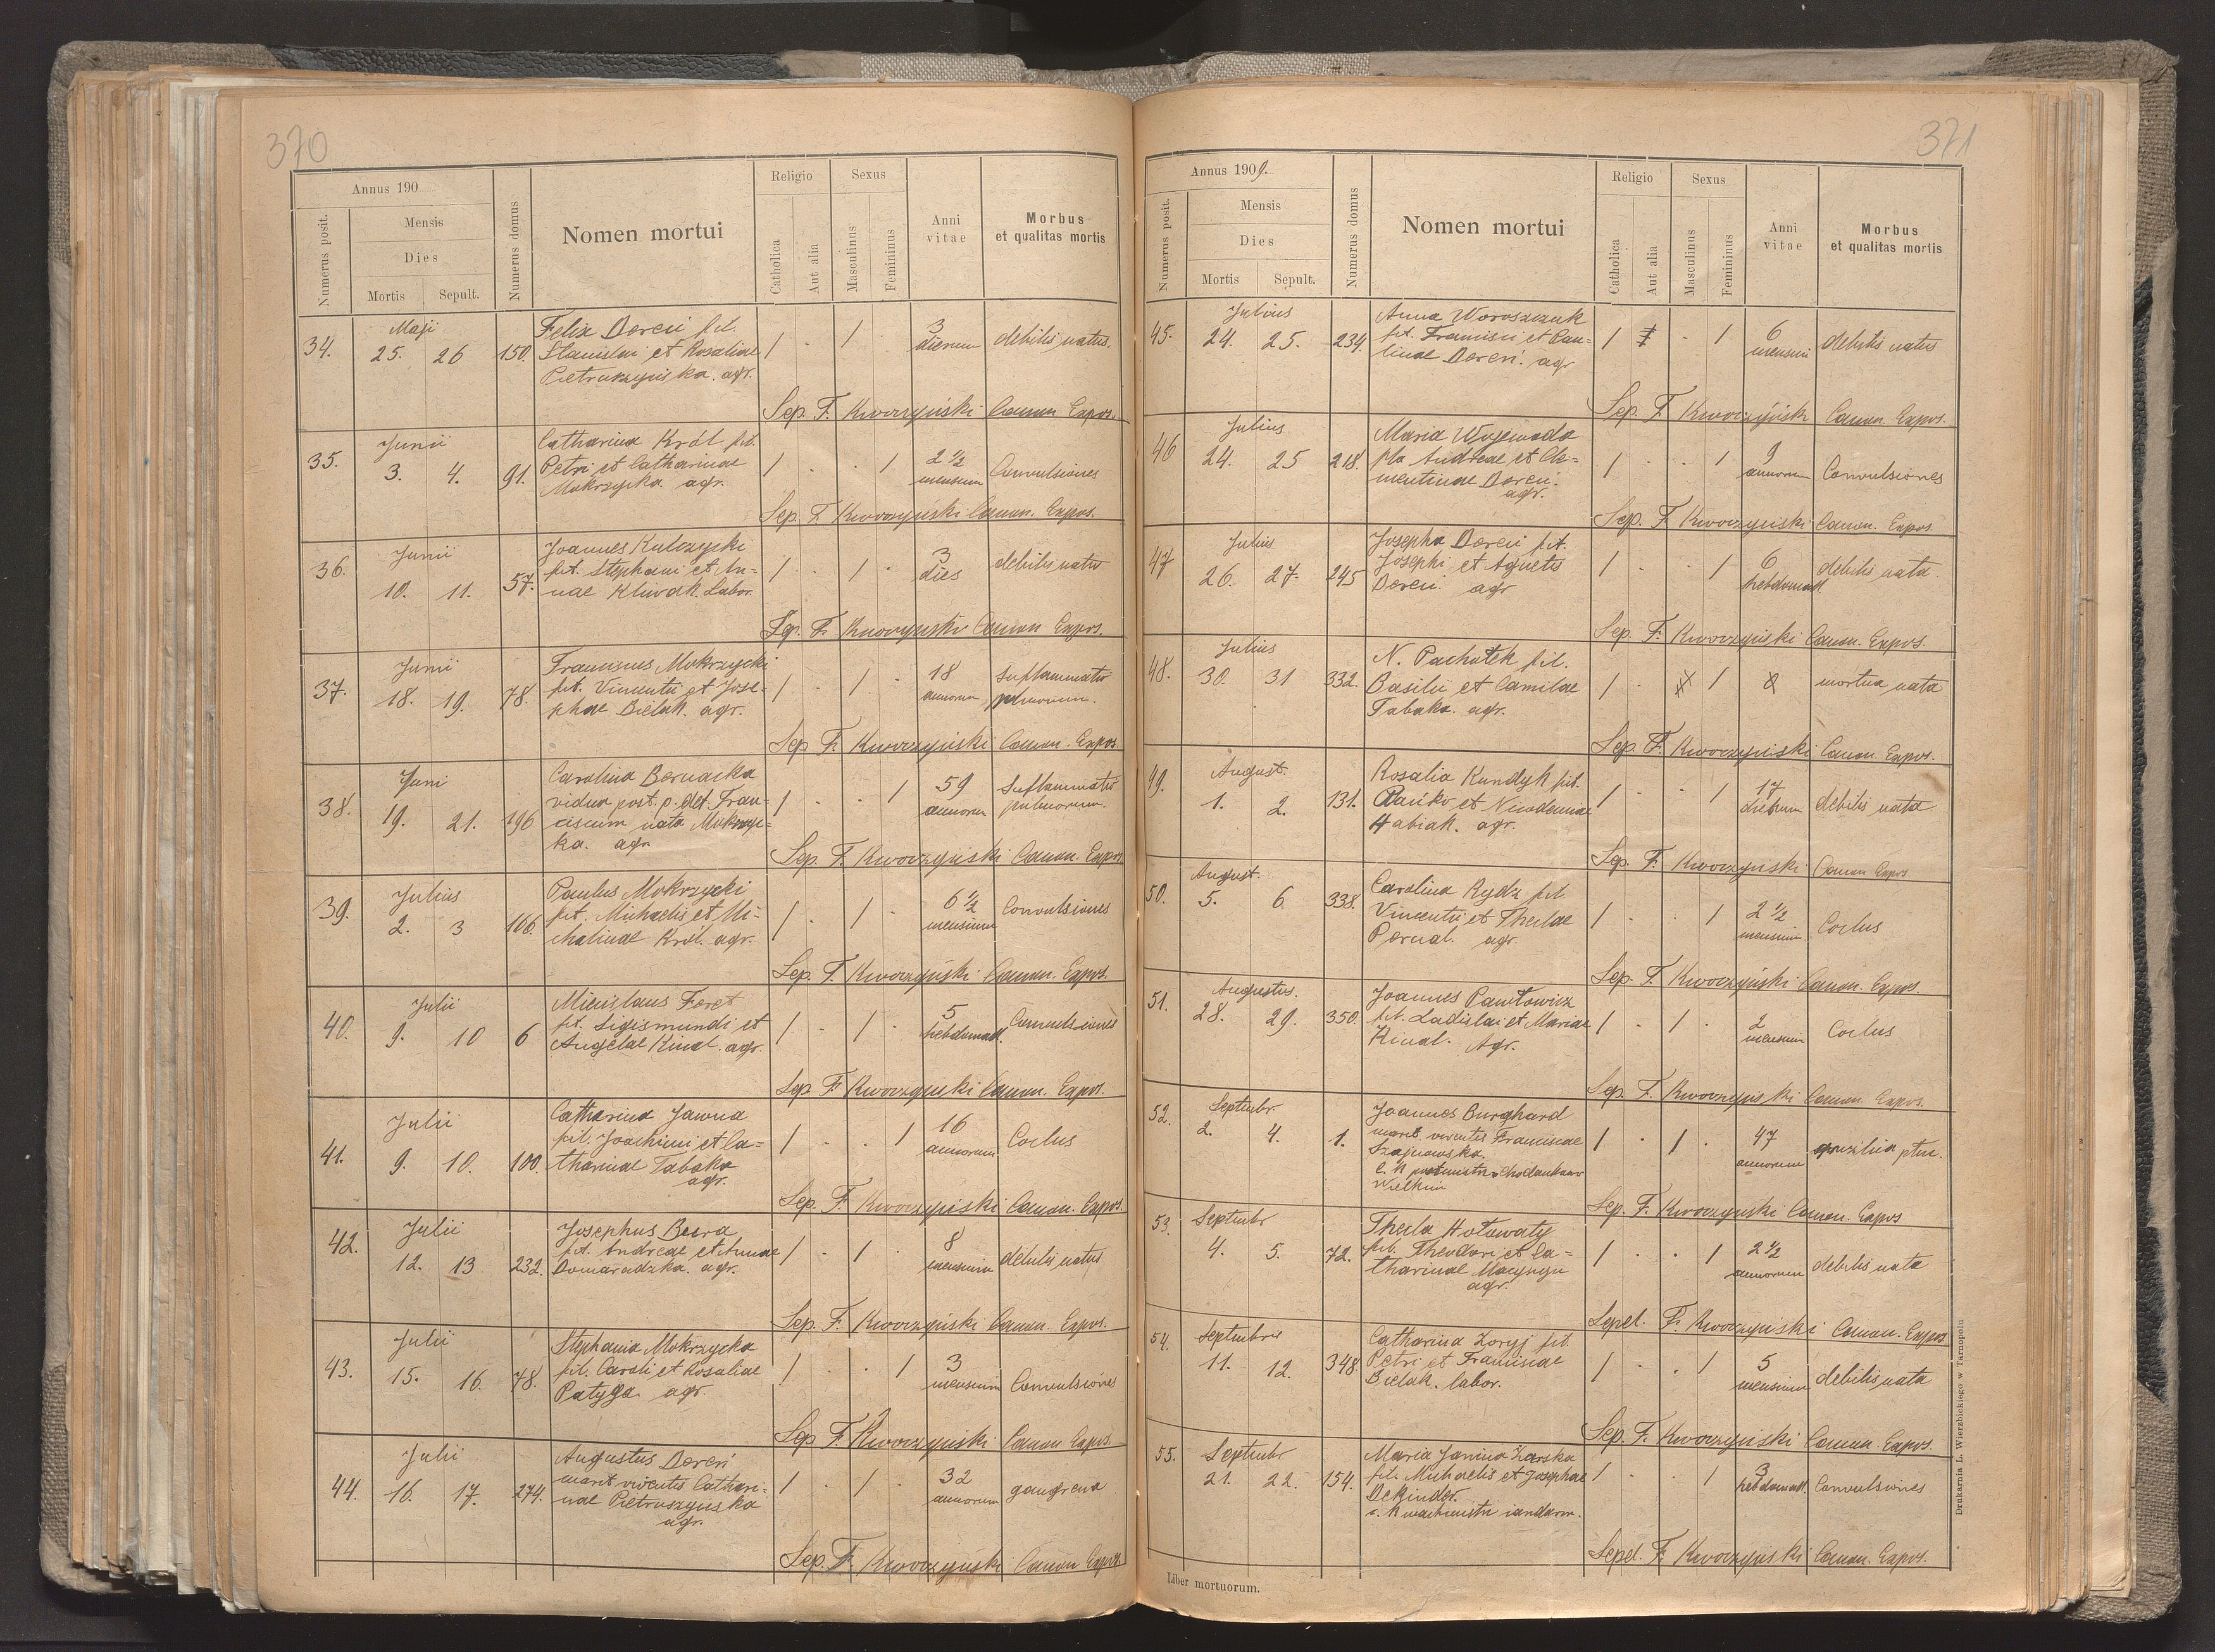 370
Annus 190
Numerus posit.
Mensis
Dies
Mortis
Sepult.
Numerus domus
Nomen mortui
Religio
Catholica
Aut alia
Sexus
Masculinus
Femininus
Anni
vitae
Morbus
et qualitas mortis
34. Maji 25. 26 150. Felix Doreń fil.
Stanislai et Rosaliae
Pietruszyńska. agr.
1 . 1 . 3 dierum debilis natus.
Sep. F. Kworzyński Coman. Expos.
35. Junii 3. 4. 91. Catharina Król fil.
Petri et Catharinae
Mokrzycka. agr.
1 . . 1 2 1/2 mensium Convulsiones
Sep. F. Kworzyński Coman. Expos.
36. Junii 10. 11. 57. Joannes Kulczycki
fil. Stephani et An-
nae Kliwak. Labor.
1 . 1 . 3 dies debilis natus
Sep. F. Kworzyński Coman Expos.
37. Junii 18. 19. 78. Franciscus Mokrzycki
fil. Vincentii et Jose-
phae Bielak. agr.
1 . 1 . 18 annorum Inflammatio
pulmonum.
Sep F. Kworzyński Coman. Expos.
38. Juni 19. 21. 196 Carolina Bernacka
vidua post. p. def. Fran-
ciscum nata Mokrzyc-
ka. agr.
1 . . 1 59 annorum Inflammatio
pulmonum.
Sep. F. Kworzyński Coman. Expos
39. Julius 2. 3 166. Paulus Mokrzycki
fil. Michaelis et Mi-
chalinae Król. agr.
1 . 1 . 6 1/2 mensium Convulsiones
Sep. F. Kworzyński Coman. Expos.
40. Julii 9. 10 6 Mieczislaus Feret
fil. Sigismundi et
Angelae Kinal. agr.
1 . 1 . 5 hebdomad. Convulsiones
Sep F. Kworzyński Coman. Expos.
41. Julii 9. 10. 100. Catharina Jawna
fil. Joachimi et Ca-
tharinae Tabaka
agr.
1 . . 1 16 annorum Coelus
Sep. F. Kworzyński Coman. Expos.
42. Julii 12. 13 232. Josephus Bura
fil. Andreae et Annae
Domaradzka. agr.
1 . 1 . 8 mensium debilis natus
Sep. F. Kworzyński Coman. Expos.
43. Julii 15. 16. 78. Stephania Mokrzycka
fil. Caroli et Rosaliae
Patyga. agr.
1 . . 1 3 mensium Convulsiones
Sep. F. Kworzyński Coman Expos.
44. Julii 16. 17. 274. Augustus Doreń
marit. viventis Cathari-
nae Pietruszyńska
agr.
1 . 1 . 32 annorum gangrena
Sep. F. Kworzyński Coman Expos.
371
Annus 1909.
Numerus posit.
Mensis
Dies
Mortis
Sepult.
Numerus domus
Nomen mortui
Religio
Catholica
Aut alia
Sexus
Masculinus
Femininus
Anni
vitae
Morbus
et qualitas mortis
45. Julius 24. 25. 234. Anna Woroszczuk
fil. Francisci et Pau-
linae Doreń. agr
1 . 1 6 mensium debilis natus
Sep. F. Kworzyński Coman. Expos.
46 Julius 24. 25 218. Maria Wojewoda
fila Andreae et Cle-
mentinae Doreń.
agr.
1 . . 1 9 annorum Convulsiones
Sep. F. Kworzyński Coman. Expos.
47 Julius 26. 27. 245 Josepha Doreń fil.
Josephi et Agnetis
Doreń. agr
1 . . 1 6 hebdomad. debilis nata.
Sep. F. Kworzyński Coman. Expos.
48. Julius 30. 31 332. N. Pachołek fil.
Basilii et Camilae
Tabaka. agr.
1 . 1 0 mortua nata
Sep. F. Kworzyński Coman. Expos.
49. August. 1. 2. 131. Rosalia Kundyk fil.
Pańko et Nicodemae
Habiak. agr.
1 . . 1 17 dierum debilis nata
Sep. F. Kworzyński Coman Expos
50. August. 5. 6. 338. Carolina Rydz fil.
Vincentii et Theclae
Pernal. agr.
1 . . 1 2 1/2 mensium Coelus
Sep. F. Kworzyński Coman. Expos.
51. Augustus. 28. 29. 350. Joannes Pawłowicz
fil. Ladislai et Mariae
Kinal. Agr.
1 . 1 . 2 mensium Coelus
Sep. F. Kworzyński Coman. Expos.
52. Septembr. 2. 4. 1. Joannes Burghard
marit. viventis Franciscae
Szajnowska.
Wielkim
1 . 1 . 47 annorum
Sep. F. Kworzyński Coman. Expos
53. Septembr 4. 5. 72. Thecla Hołowaty
fil. Theodori et Ca-
tharinae Macyszyn
agr.
1 . . 1 2 1/2 annorum debilis nata
Sepel. F. Kworzyński Coman. Expos.
54. Septembris 11. 12. 348. Catharina Zoryj fil.
Petri et Franciscae
Bielak. labor.
1 . . 1 5 mensium debilis nata
Sep. F. Kworzyński Coman. Expos.
55. Septembr 21. 22. 154. Maria Janina Zarska
fil. Michaelis et Josephae
Dekinder.
c. k wachmistr. żandarm.
1 . . 1 3 hebdomad. Convulsiones
Sepel. F. Kworzyński Coman. Expos.
Liber mortuorum.
Drukarnia L. Wierzbickiego w Tarnopolu